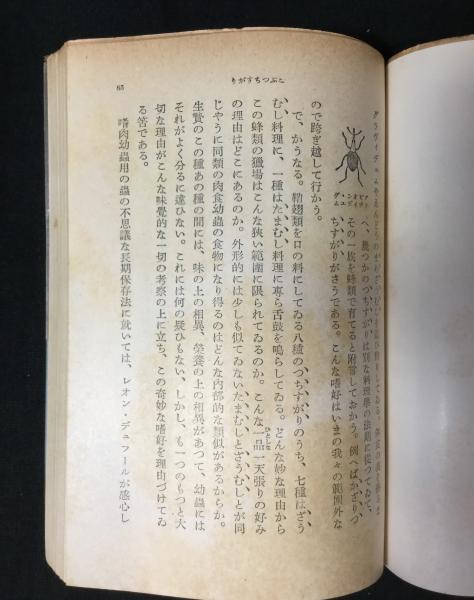 こぶつちすがり
65
アピオン・グラヴィデュム
へ、幾つかのつちすがりは別な料理學の法則に從つてゐて、
その一族を蜂類で育てると附言しておかう。例へばかざりつ
ちすがりがさうである。こんな嗜好はいまの我々の範圍外な
ので跨ぎ越して行かう。
で、かうなる。鞘翅類を口の料にしてゐる八種のつちすがりのうち、七種はざう
むし料理に、一種はたまむし料理に專ら舌鼓を鳴らしてゐる。どんな妙な理由から
この蜂類の獵場はこんな狹い範圍に限られてゐるのか。こんな一品天張りの好み
ひとしな
の理由はどこにあるのか。外形的には少しも似てゐないたまむしとざうむしとが同
じやうに同類の肉食幼蟲の食物になり得るのはどんな內部的な類似があるからか。
生贄のこの種あの種の間には、味の上の相異、榮養の上の相異があつて、幼蟲には
それがよく分るに違ひない。これには何の疑ひもない、しかし、も一つのもつと大
切な理由がこんな味覺的な一切の考察の上に立ち、この奇妙な嗜好を理由づけてゐ
る筈である。
嗜肉幼蟲用の蟲の不思議な長期保存法に就いては、レオン・デュフールが感心し